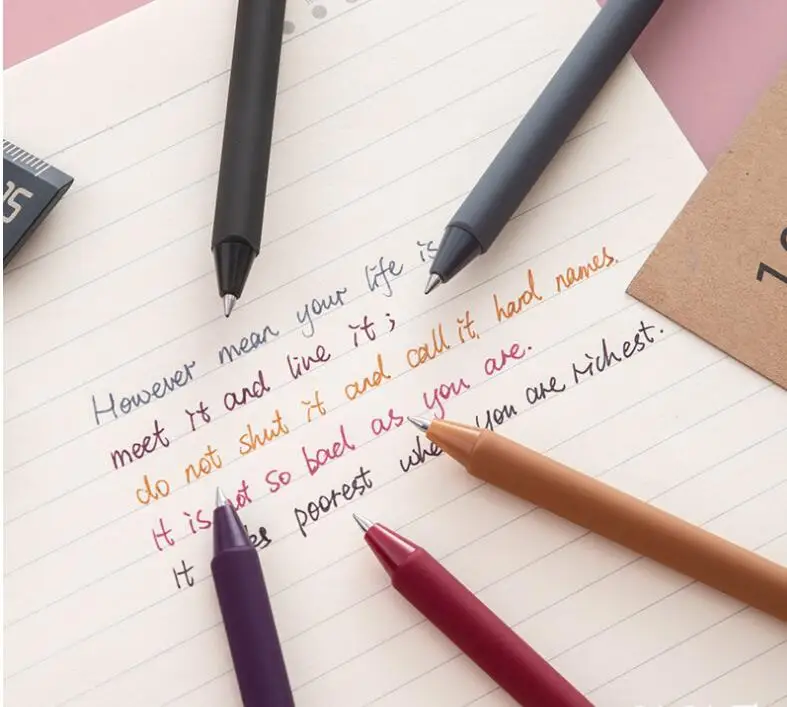 However mean your life is
meet it and live it;
do not shut it and call it. hard names.
It is not so bad as you are.
It poorest you are richest.